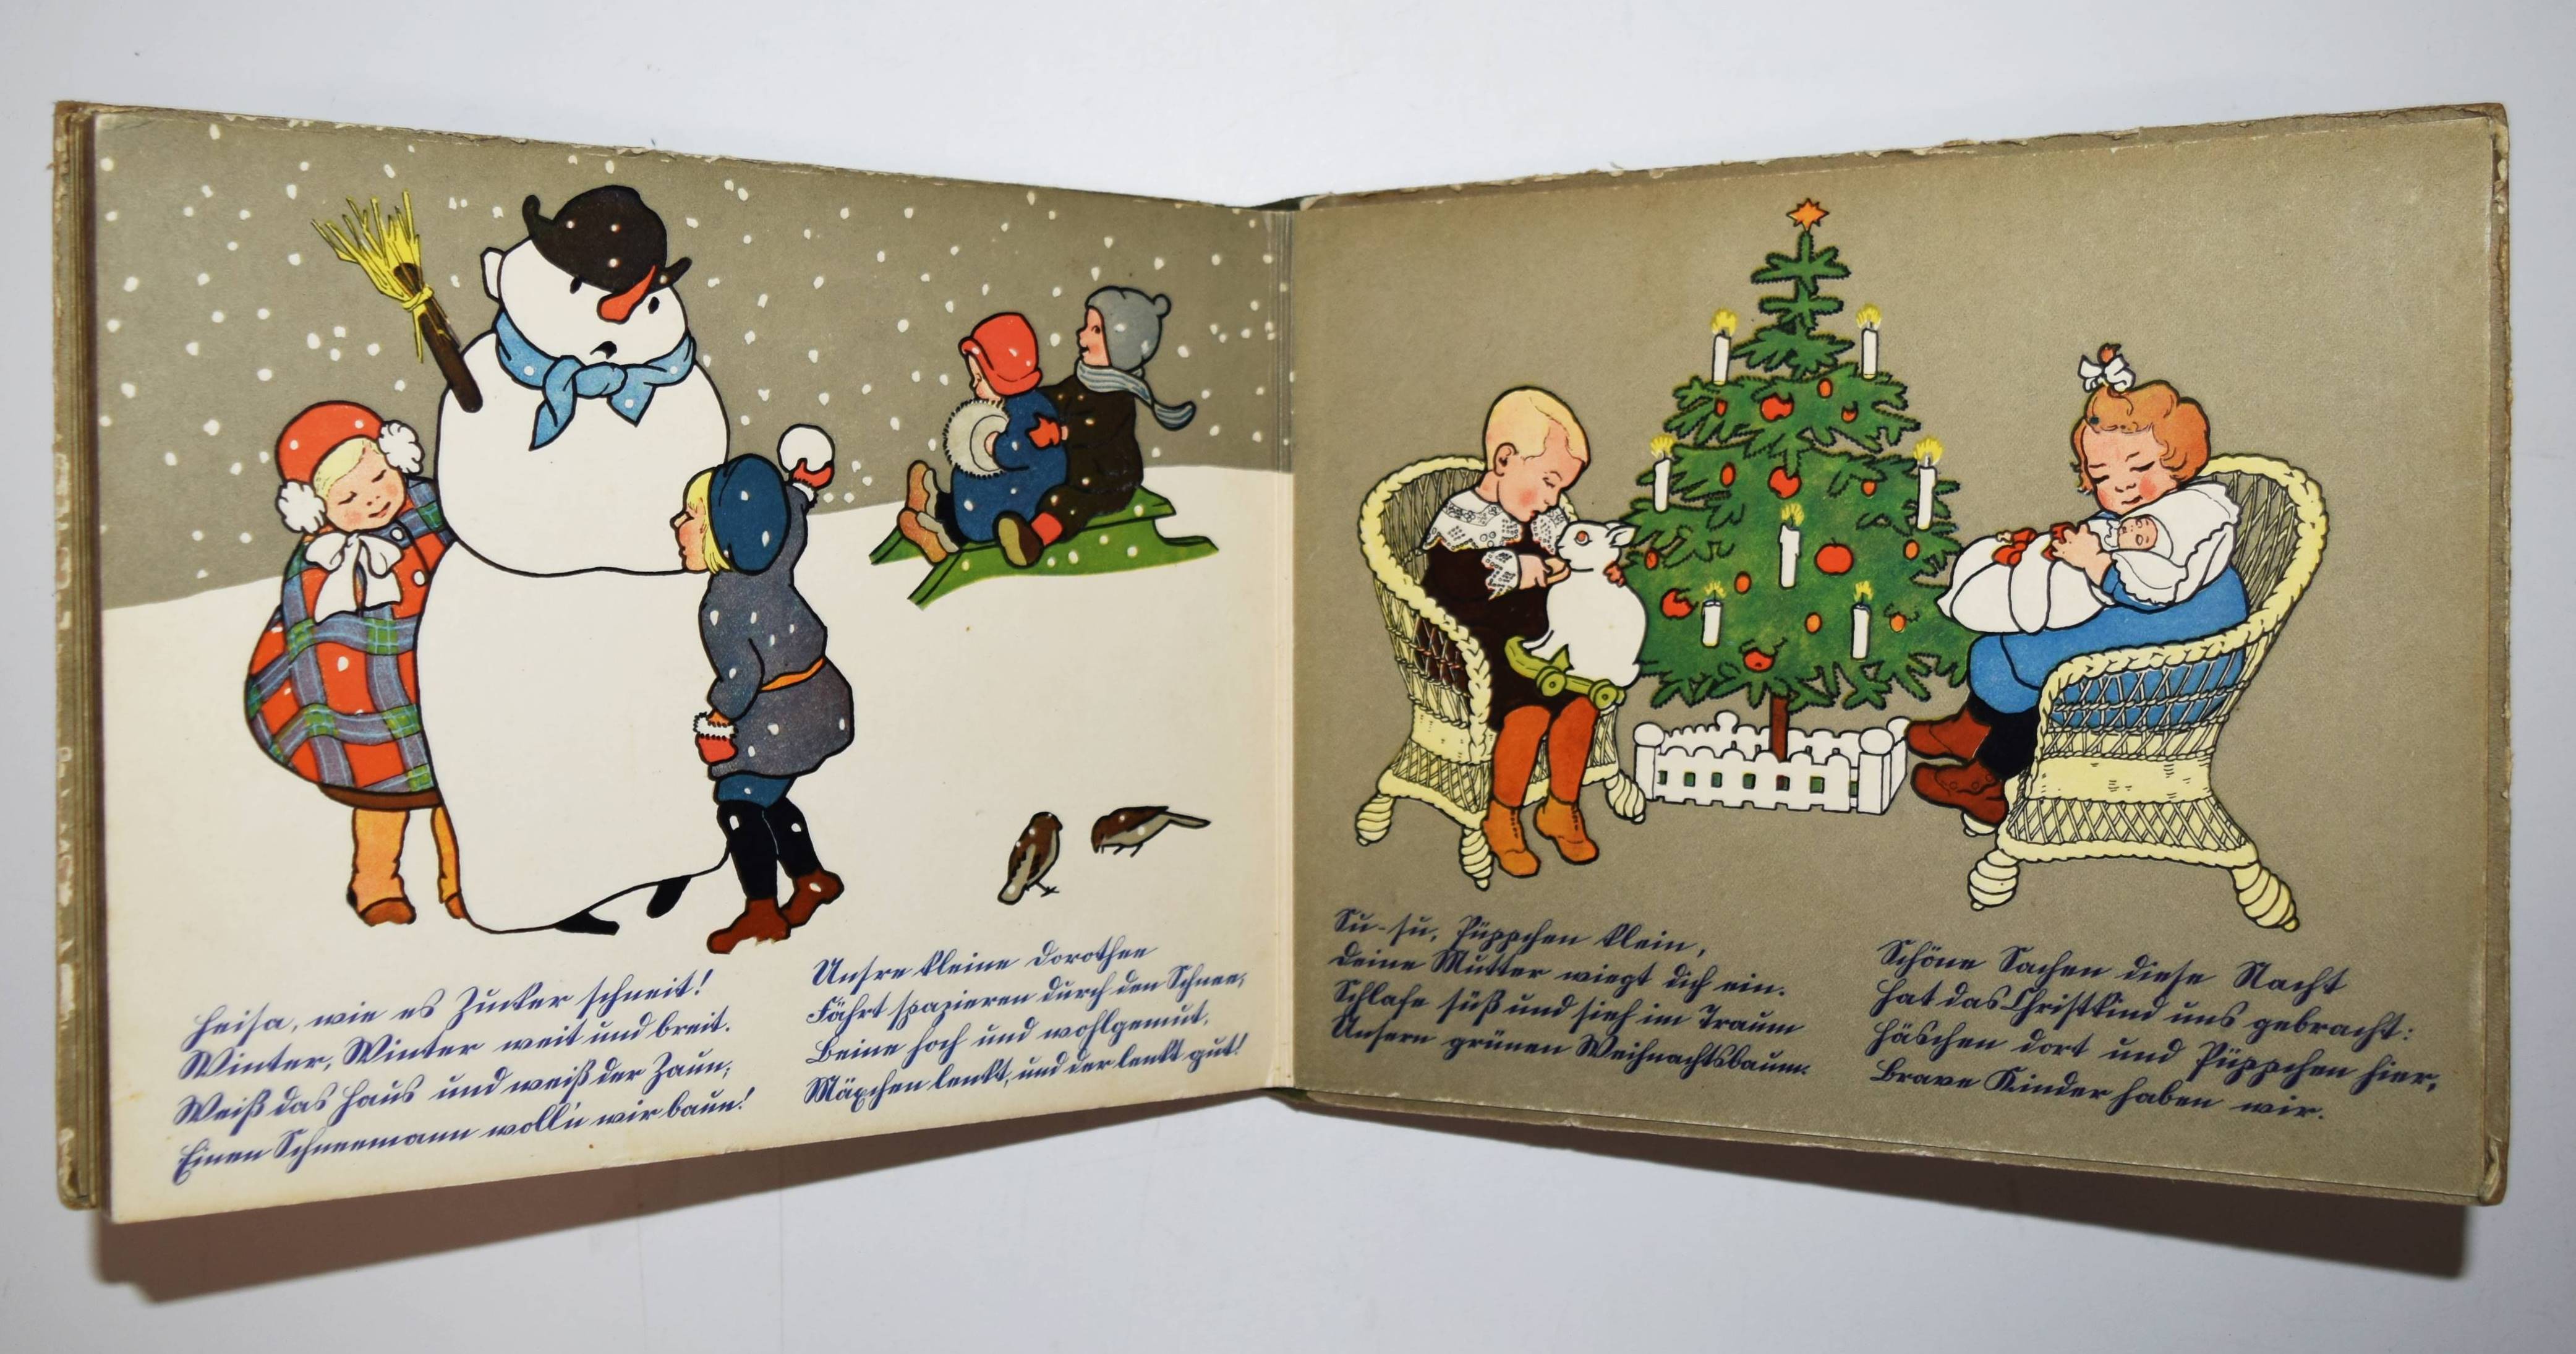 Heisa, wie es Zucker schneit!
Winter, Winter weit und breit.
Weiß das Haus und weiß der Zaun;
Einen Schneemann woll'n wir baun!
Unsre kleine Dorothee
Fährt spazieren durch den Schnee,
Beine hoch und wohlgemut.
Mäxchen lenkt, und der lenkt gut!
Su-su, Püppchen klein,
Deine Mutter wiegt dich ein.
Schlafe süß und sieh im Traum
Unsern grünen Weihnachtsbaum.
Schöne Sachen diese Nacht
Hat das Christkind uns gebracht:
Häschen dort und Püppchen hier,
Brave Kinder haben wir.